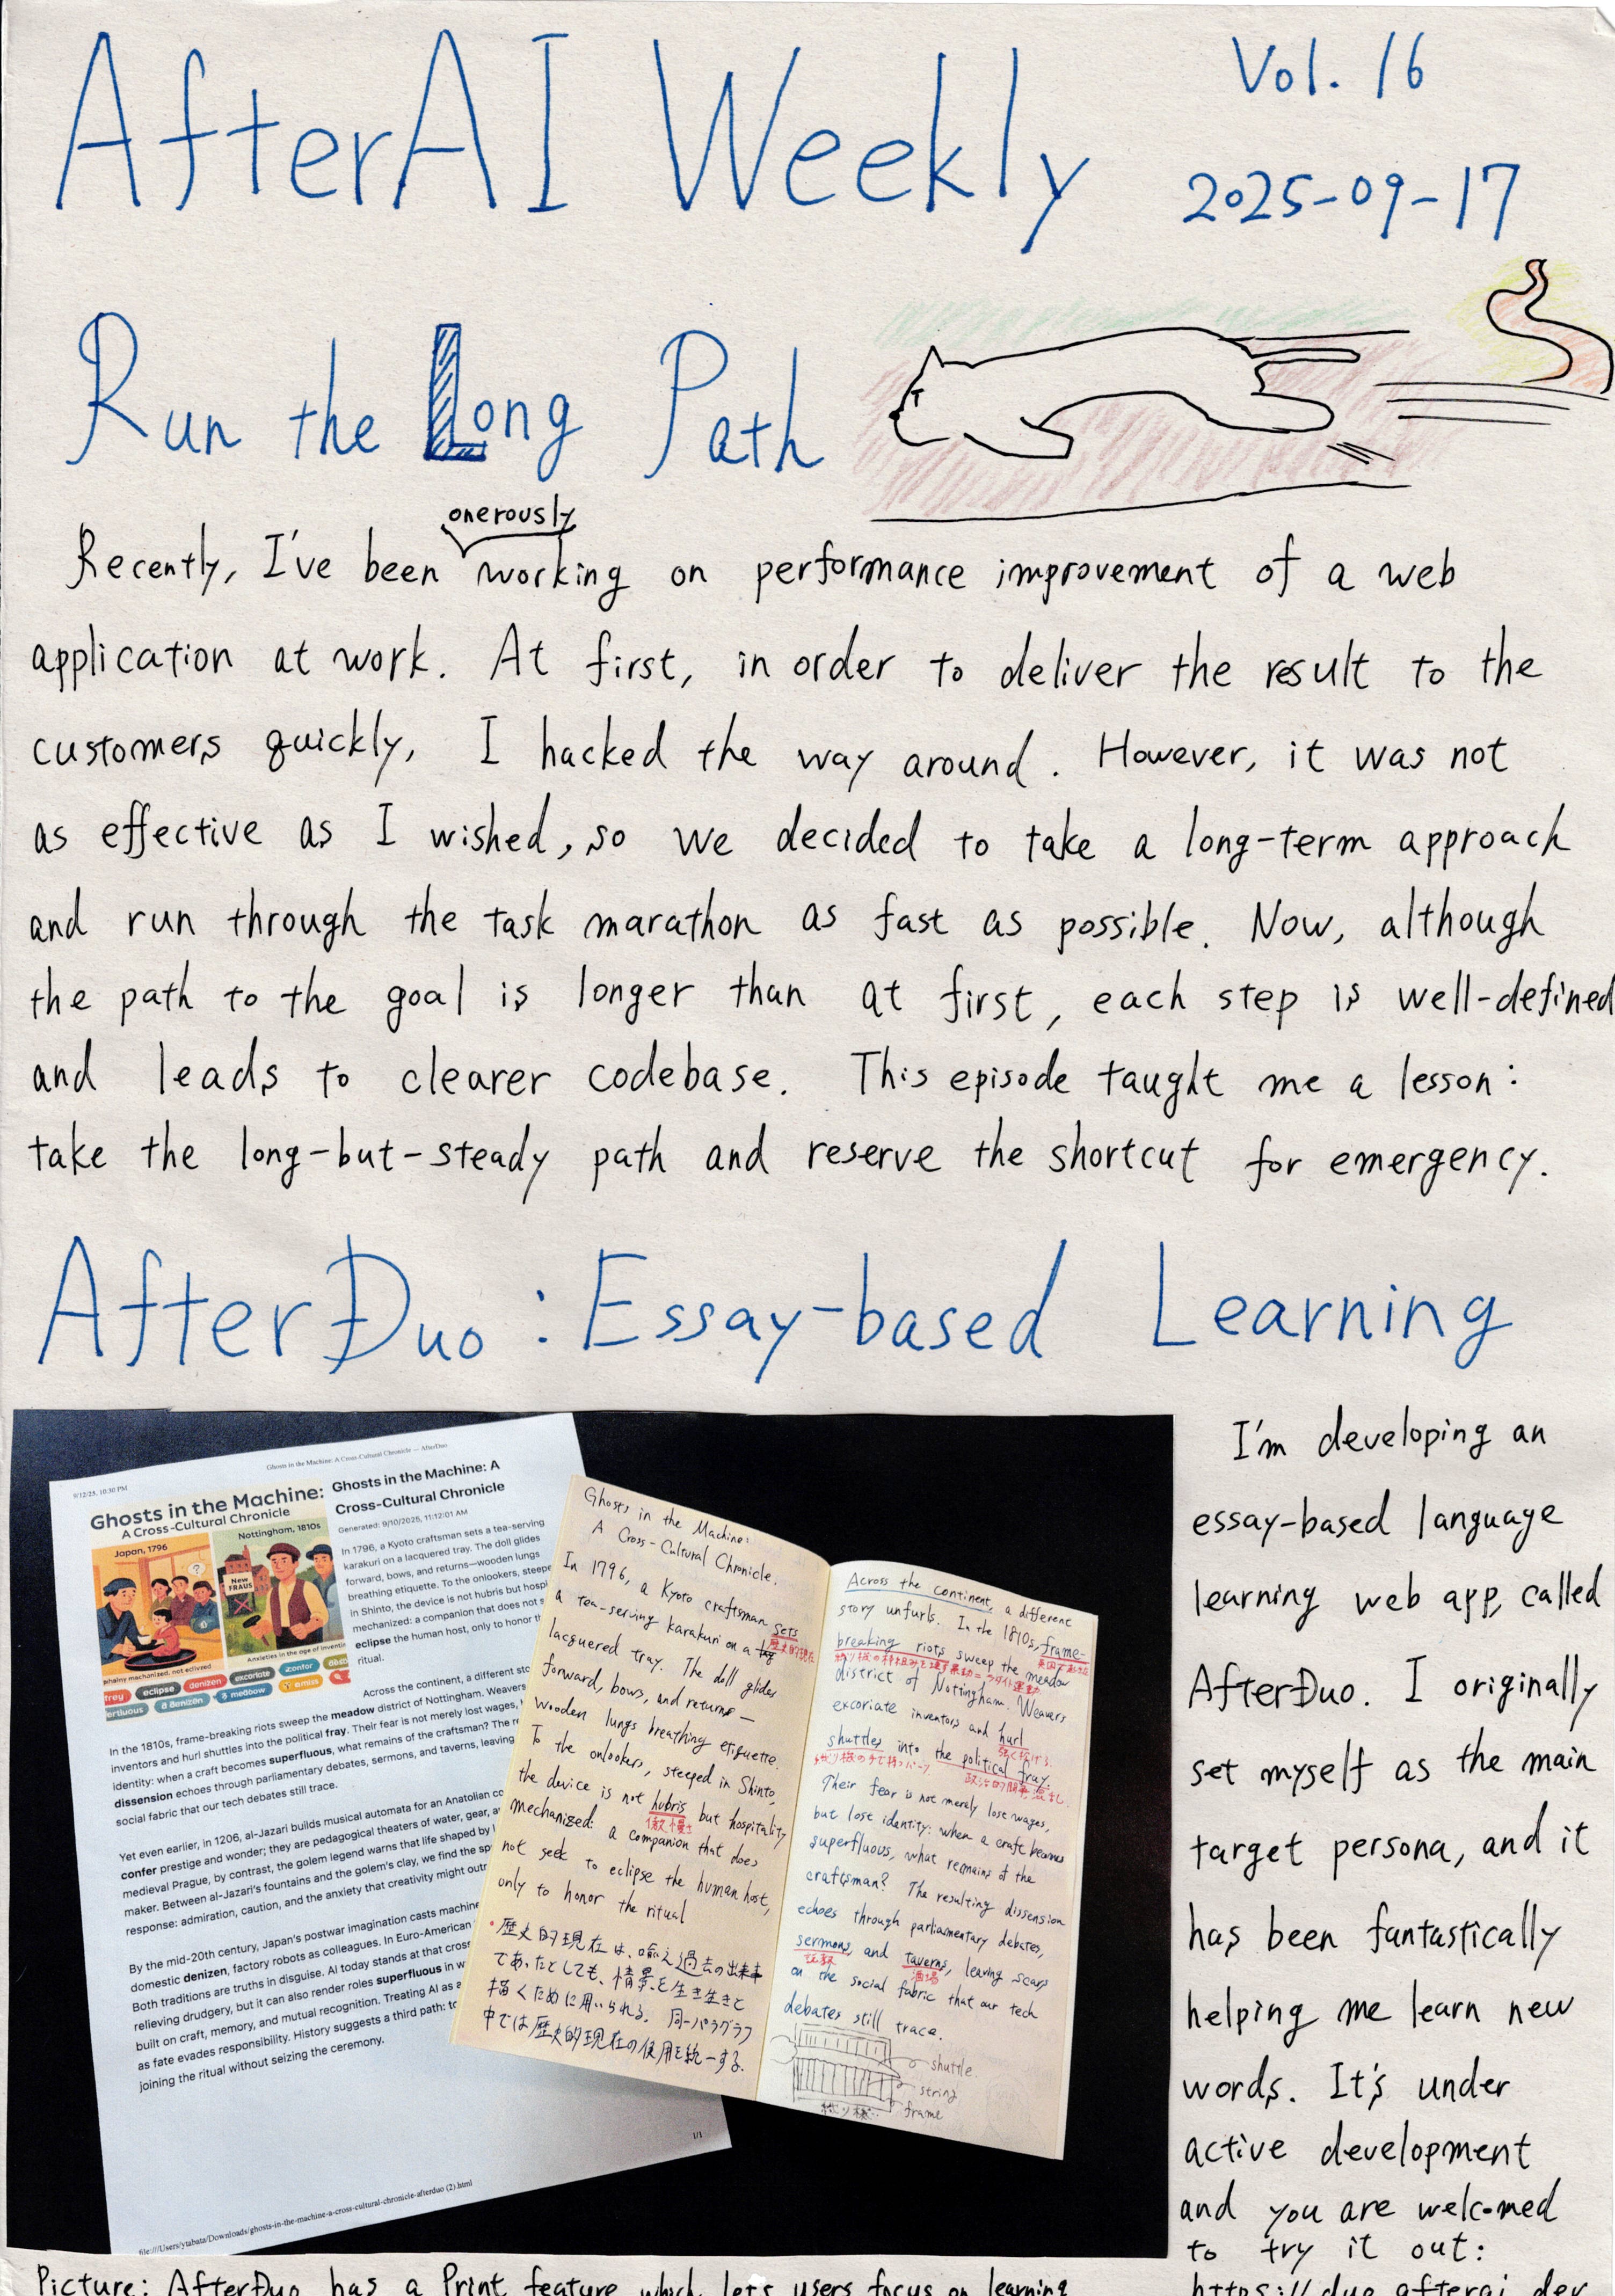 AfterAI Weekly
Vol. 16
2025-09-17
Run the Long Path
onerously
Recently, I've been working on performance improvement of a web
application at work. At first, in order to deliver the result to the
customers quickly, I hacked the way around. However, it was not
as effective as I wished, so we decided to take a long-term approach
and run through the task marathon as fast as possible. Now, although
the path to the goal is longer than at first, each step is well-defined
and leads to clearer codebase. This episode taught me a lesson:
take the long-but-steady path and reserve the shortcut for emergency.
AfterDuo: Essay-based Learning
Ghosts in the Machine: A Cross-Cultural Chronicle — AfterDuo
9/12/25, 10:30 PM
Ghosts in the Machine:
A Cross-Cultural Chronicle
Japan, 1796
Nottingham, 1810s
New
FRAUS
?
Anxieties in the age of
mechanized, not eclived
fray eclipse denizen excoriate confer
a denizen a meadow amiss
Ghosts in the Machine: A
Cross-Cultural Chronicle
Generated: 9/10/2025, 11:12:01 AM
In 1796, a Kyoto craftsman sets a tea-serving
karakuri on a lacquered tray. The doll glides
forward, bows, and returns—wooden lungs
breathing etiquette. To the onlookers, steepe
in Shinto, the device is not hubris but hospi
mechanized: a companion that does not s
eclipse the human host, only to honor th
ritual.
Across the continent, a different sto
In the 1810s, frame-breaking riots sweep the meadow district of Nottingham. Weavers
inventors and hurl shuttles into the political fray. Their fear is not merely lost wages,
identity: when a craft becomes superfluous, what remains of the craftsman? The r
dissension echoes through parliamentary debates, sermons, and taverns, leaving
social fabric that our tech debates still trace.
Yet even earlier, in 1206, al-Jazari builds musical automata for an Anatolian co
confer prestige and wonder; they are pedagogical theaters of water, gear, a
medieval Prague, by contrast, the golem legend warns that life shaped by
maker. Between al-Jazari's fountains and the golem's clay, we find the sp
response: admiration, caution, and the anxiety that creativity might outr
By the mid-20th century, Japan's postwar imagination casts machine
domestic denizen, factory robots as colleagues. In Euro-American
Both traditions are truths in disguise. AI today stands at that cross
relieving drudgery, but it can also render roles superfluous in w
built on craft, memory, and mutual recognition. Treating AI as a
as fate evades responsibility. History suggests a third path: to
joining the ritual without seizing the ceremony.
1/1
file:///Users/ytabata/Downloads/ghosts-in-the-machine-a-cross-cultural-chronicle-afterduo (2).html
Ghosts in the Machine:
A Cross-Cultural Chronicle.
In 1796, a Kyoto craftsman sets
歴史的現在
a tea-serving karakuri on a
lacquered tray. The doll glides
forward, bows, and returns—
wooden lungs breathing etiquette.
To the onlookers, steeped in Shinto,
the device is not hubris but hospitality
傲慢さ
mechanized: a companion that does
not seek to eclipse the human host,
only to honor the ritual
・歴史的現在は、喩え過去の出来事
であったとしても、情景を生き生きと
描くために用いられる。同一パラグラフ
中では歴史的現在の使用を統一する。
Across the continent, a different
story unfurls. In the 1810s, frame-
breaking riots sweep the meadow
district of Nottingham. Weavers
excoriate inventors and hurl
強く投げる
shuttles into the political fray.
Their fear is not merely lose wages,
but lose identity: when a craft becomes
superfluous, what remains of the
craftsman? The resulting dissension
echoes through parliamentary debates,
sermons, and taverns, leaving scars
説教 酒場
on the social fabric that our tech
debates still trace.
shuttle
string
frame
I'm developing an
essay-based language
learning web app, called
AfterDuo. I originally
set myself as the main
target persona, and it
has been fantastically
helping me learn new
words. It's under
active development
and you are welcomed
to try it out:
https://duo.afterai.dev
Picture: AfterDuo has a Print feature which lets users focus on learning